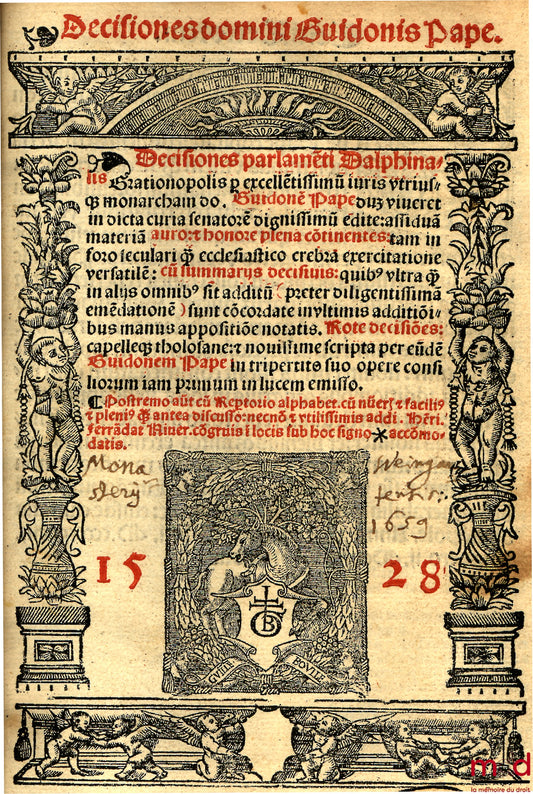 Decisiones domini Guidonis Pape.
Decisiones parlamēti Dalphina⸗
lis Grationopolis p excellētissimū iuris vtrius⸗
q̄ monarcham do. Guidonē Pape duȝ viueret
in dicta curia senatorē dignissimū edite: assiduā
materiā auro: ⁊ honore plena cōtinentes: tam in
foro seculari q̄ ecclesiastico crebrā exercitatione
versatilē: cū summarijs decisiuis: quibꝰ vltra q̄
in alijs omnibꝰ sit additū (preter diligentissimā
emēdationē) sunt cōcordate in vltimis additiōi⸗
bus manus appositiōe notatis. Rote decisiōes:
capelleqȝ tholosane: ⁊ nouissime scripta per eūdē
Guidonem Pape in tripertito suo opere consi
liorum iam primum in lucem emisso.
¶ Postremo aūt cū Reptorio alphabet. cū nūerſ ⁊ faciliꝰ
⁊ pleniꝰ q̄ antea discusso: necnō ⁊ vtilissimis addi. Hēri.
ferrādat Niuer. cōgruis ī locis sub hoc signo ★ accōmo⸗
datis.
Mona
sterij
Weingar
tensis.
1659
15 28
B
m d
la mémoire du droit